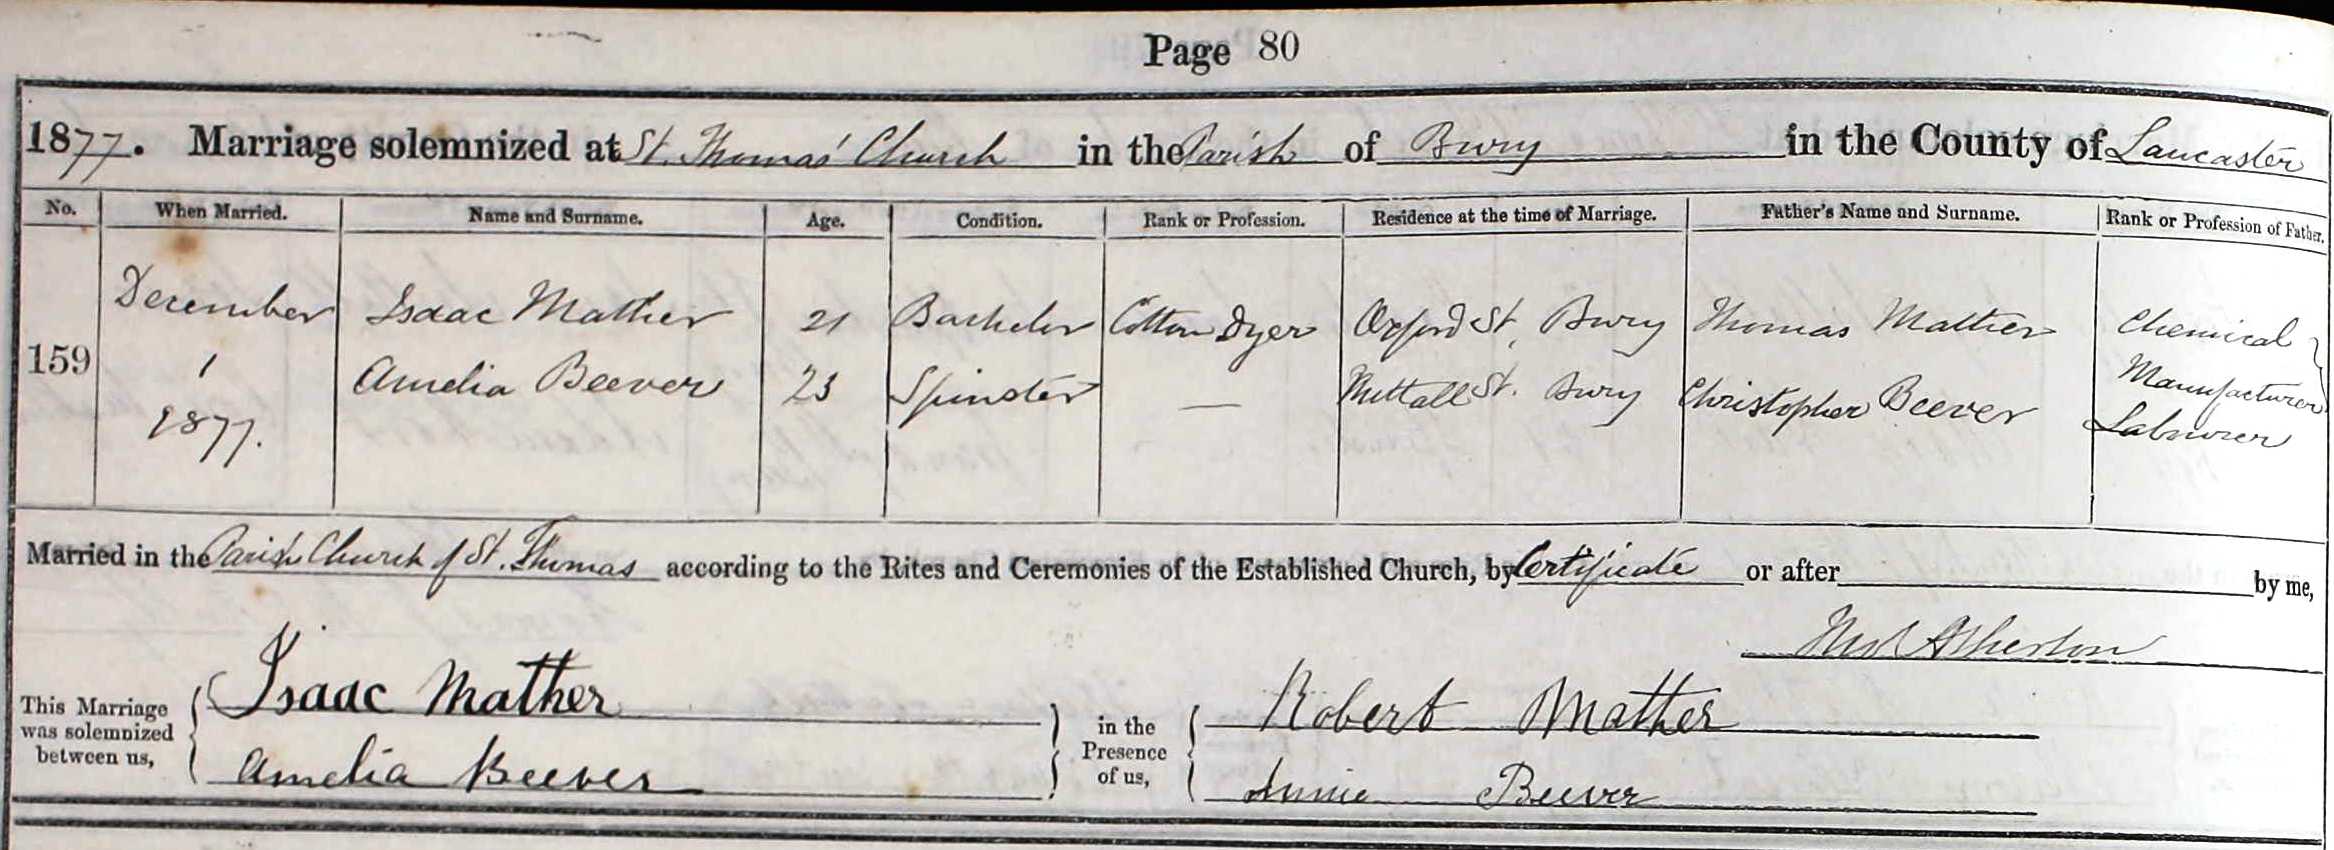 Page 80
1877. Marriage solemnized at St. Thomas' Church in the Parish of Bury in the County of Lancaster
No. When Married. Name and Surname. Age. Condition. Rank or Profession. Residence at the time of Marriage. Father's Name and Surname. Rank or Profession of Father.
159 December 1 1877.
Isaac Mather 21 Bachelor Cotton Dyer Oxford St, Bury Thomas Mather Chemical Manufacturer
Amelia Beever 23 Spinster — St. Bury Christopher Beever Labourer
Married in the Parish Church of St. Thomas according to the Rites and Ceremonies of the Established Church, by Certificate or after by me,
Thos Atherton
This Marriage was solemnized between us,
Isaac Mather
Amelia Beever
in the Presence of us,
Robert Mather
Annie Beever